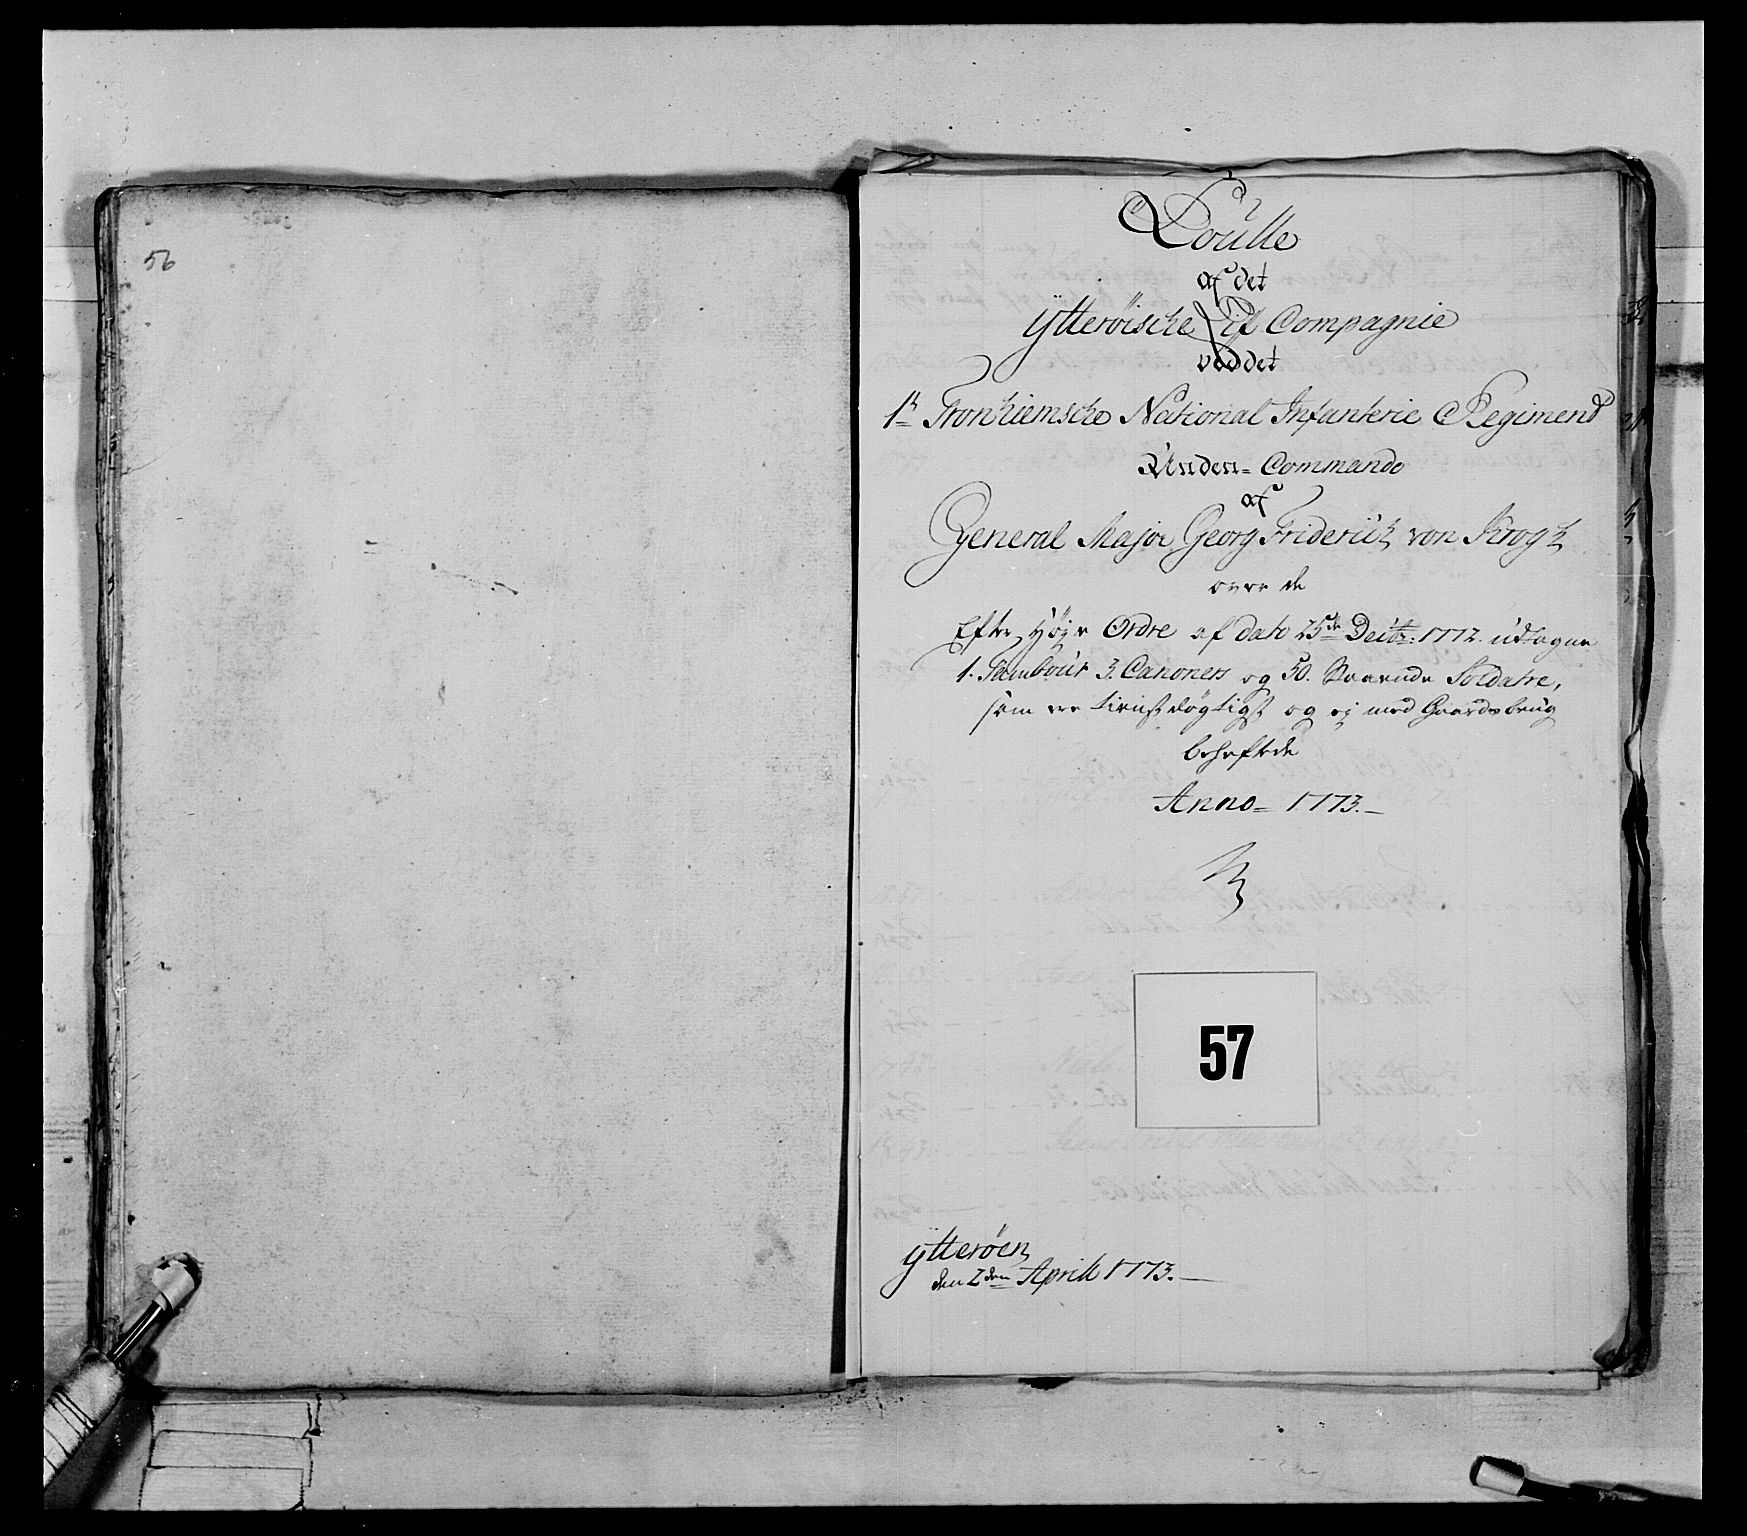 56
Roulle
af det
Ytteröische Lif Compagnie
ved det
1te Tronhiemsche National Infanterie Regiment
Unden= Commando
af
General Major Georg Friderich von Krogh
over de
Efter Höje Ordre af dato 25de Decbr: 1772. udtagne
1. Tambour 3. Canoners og 50. Svarende Soldater,
som ere tienstdögtigst og ej med Gaardsbrug
beheftede
Anno= 1773.
57
Ytteröen
den 2den Aprill 1773.